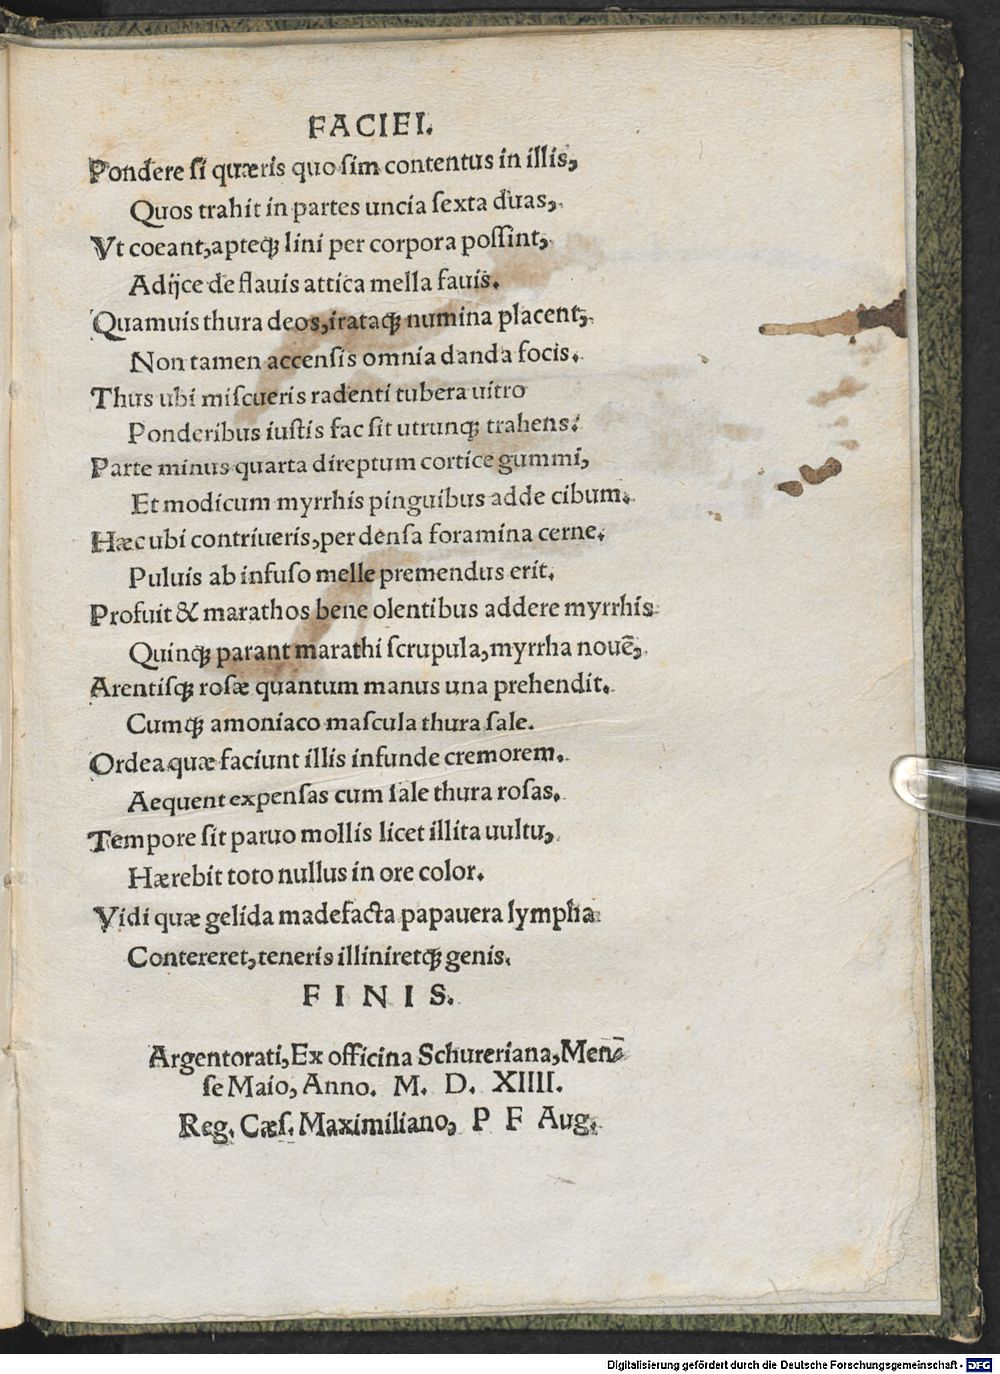 FACIEI.
Pondere si quæris quo sim contentus in illis,
Quos trahit in partes uncia sexta duas,
Vt coeant, apteq; lini per corpora possint,
Adijce de flauis attica mella fauis.
Quamuis thura deos, irataq; numina placent,
Non tamen accensis omnia danda focis.
Thus ubi miscueris radenti tubera uitro
Ponderibus iustis fac sit utrunq; trahens.
Parte minus quarta direptum cortice gummi,
Et modicum myrrhis pinguibus adde cibum.
Hæc ubi contriueris, per densa foramina cerne.
Puluis ab infuso melle premendus erit.
Profuit & marathos bene olentibus addere myrrhis
Quinq; parant marathi scrupula, myrrha nouē,
Arentisq; rosæ quantum manus una prehendit.
Cumq; amoniaco mascula thura sale.
Ordea quæ faciunt illis infunde cremorem.
Aequent expensas cum sale thura rosas.
Tempore sit paruo mollis licet illita uultu,
Hærebit toto nullus in ore color.
Vidi quæ gelida madefacta papauera lympha
Contereret, teneris illiniretq; genis.
FINIS.
Argentorati, Ex officina Schureriana, Men
se Maio, Anno. M. D. XIIII.
Reg. Cæs. Maximiliano, P F Aug.
Digitalisierung gefördert durch die Deutsche Forschungsgemeinschaft - DFG